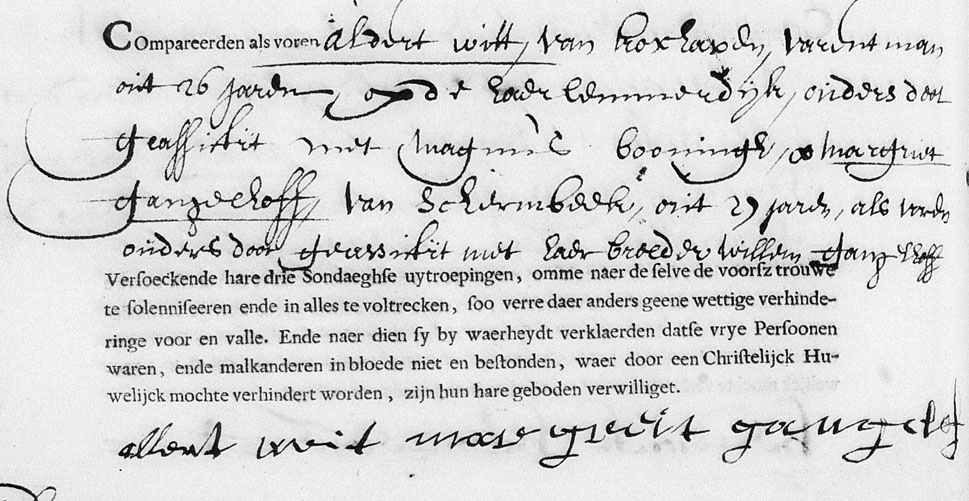 Compareerden als voren Aldert Witt, van Boxhaven, Varentman
out 26 jaren, op de Haerlemmerdijk, ouders doot
geassisteert met Magnus Booningh, & Margriet
Ganzehoff, van Schermbeek, out 27 jaren, als voren
ouders doot geassisteert met haer broeder Willem Ganzehoff
Verſoeckende hare drie Sondaeghſe uytroepingen, omme naer de ſelve de voorſz trouwe
te ſolenniſeeren ende in alles te voltrecken, ſoo verre daer anders geene wettige verhinde-
ringe voor en valle. Ende naer dien ſy by waerheydt verklaerden datſe vrye Perſoonen
waren, ende malkanderen in bloede niet en beſtonden, waer door een Chriſtelijck Hu-
welijck mochte verhindert worden, zijn hun hare geboden verwilliget.
allert wit margreit